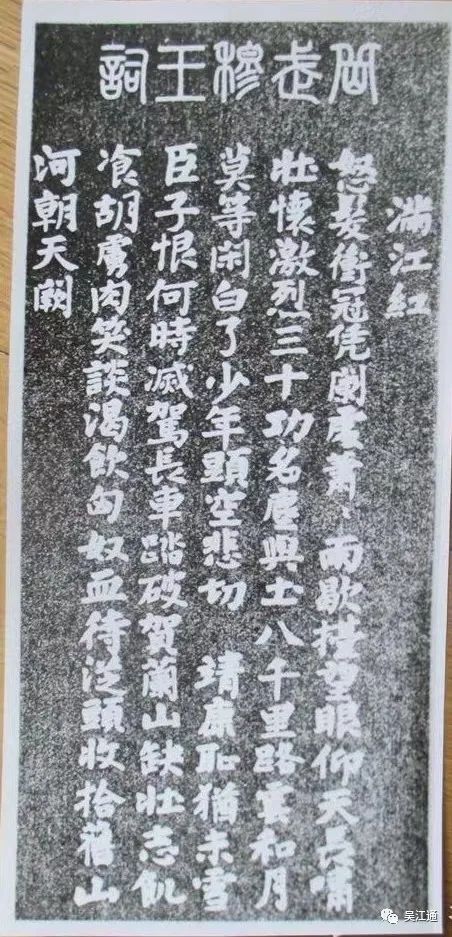 岳武穆王詞
滿江紅
怒髮衝冠凭闌處蕭、雨歇擡望眼仰天長嘯
壯懷激烈三十功名塵與土八千里路雲和月
莫等閑白了少年頭空悲切 靖康恥猶未雪
臣子恨何時滅駕長車踏破賀蘭山缺壯志飢
飡胡虜肉笑談渴飲匈奴血待從頭收拾舊山
河朝天闕
吴江通